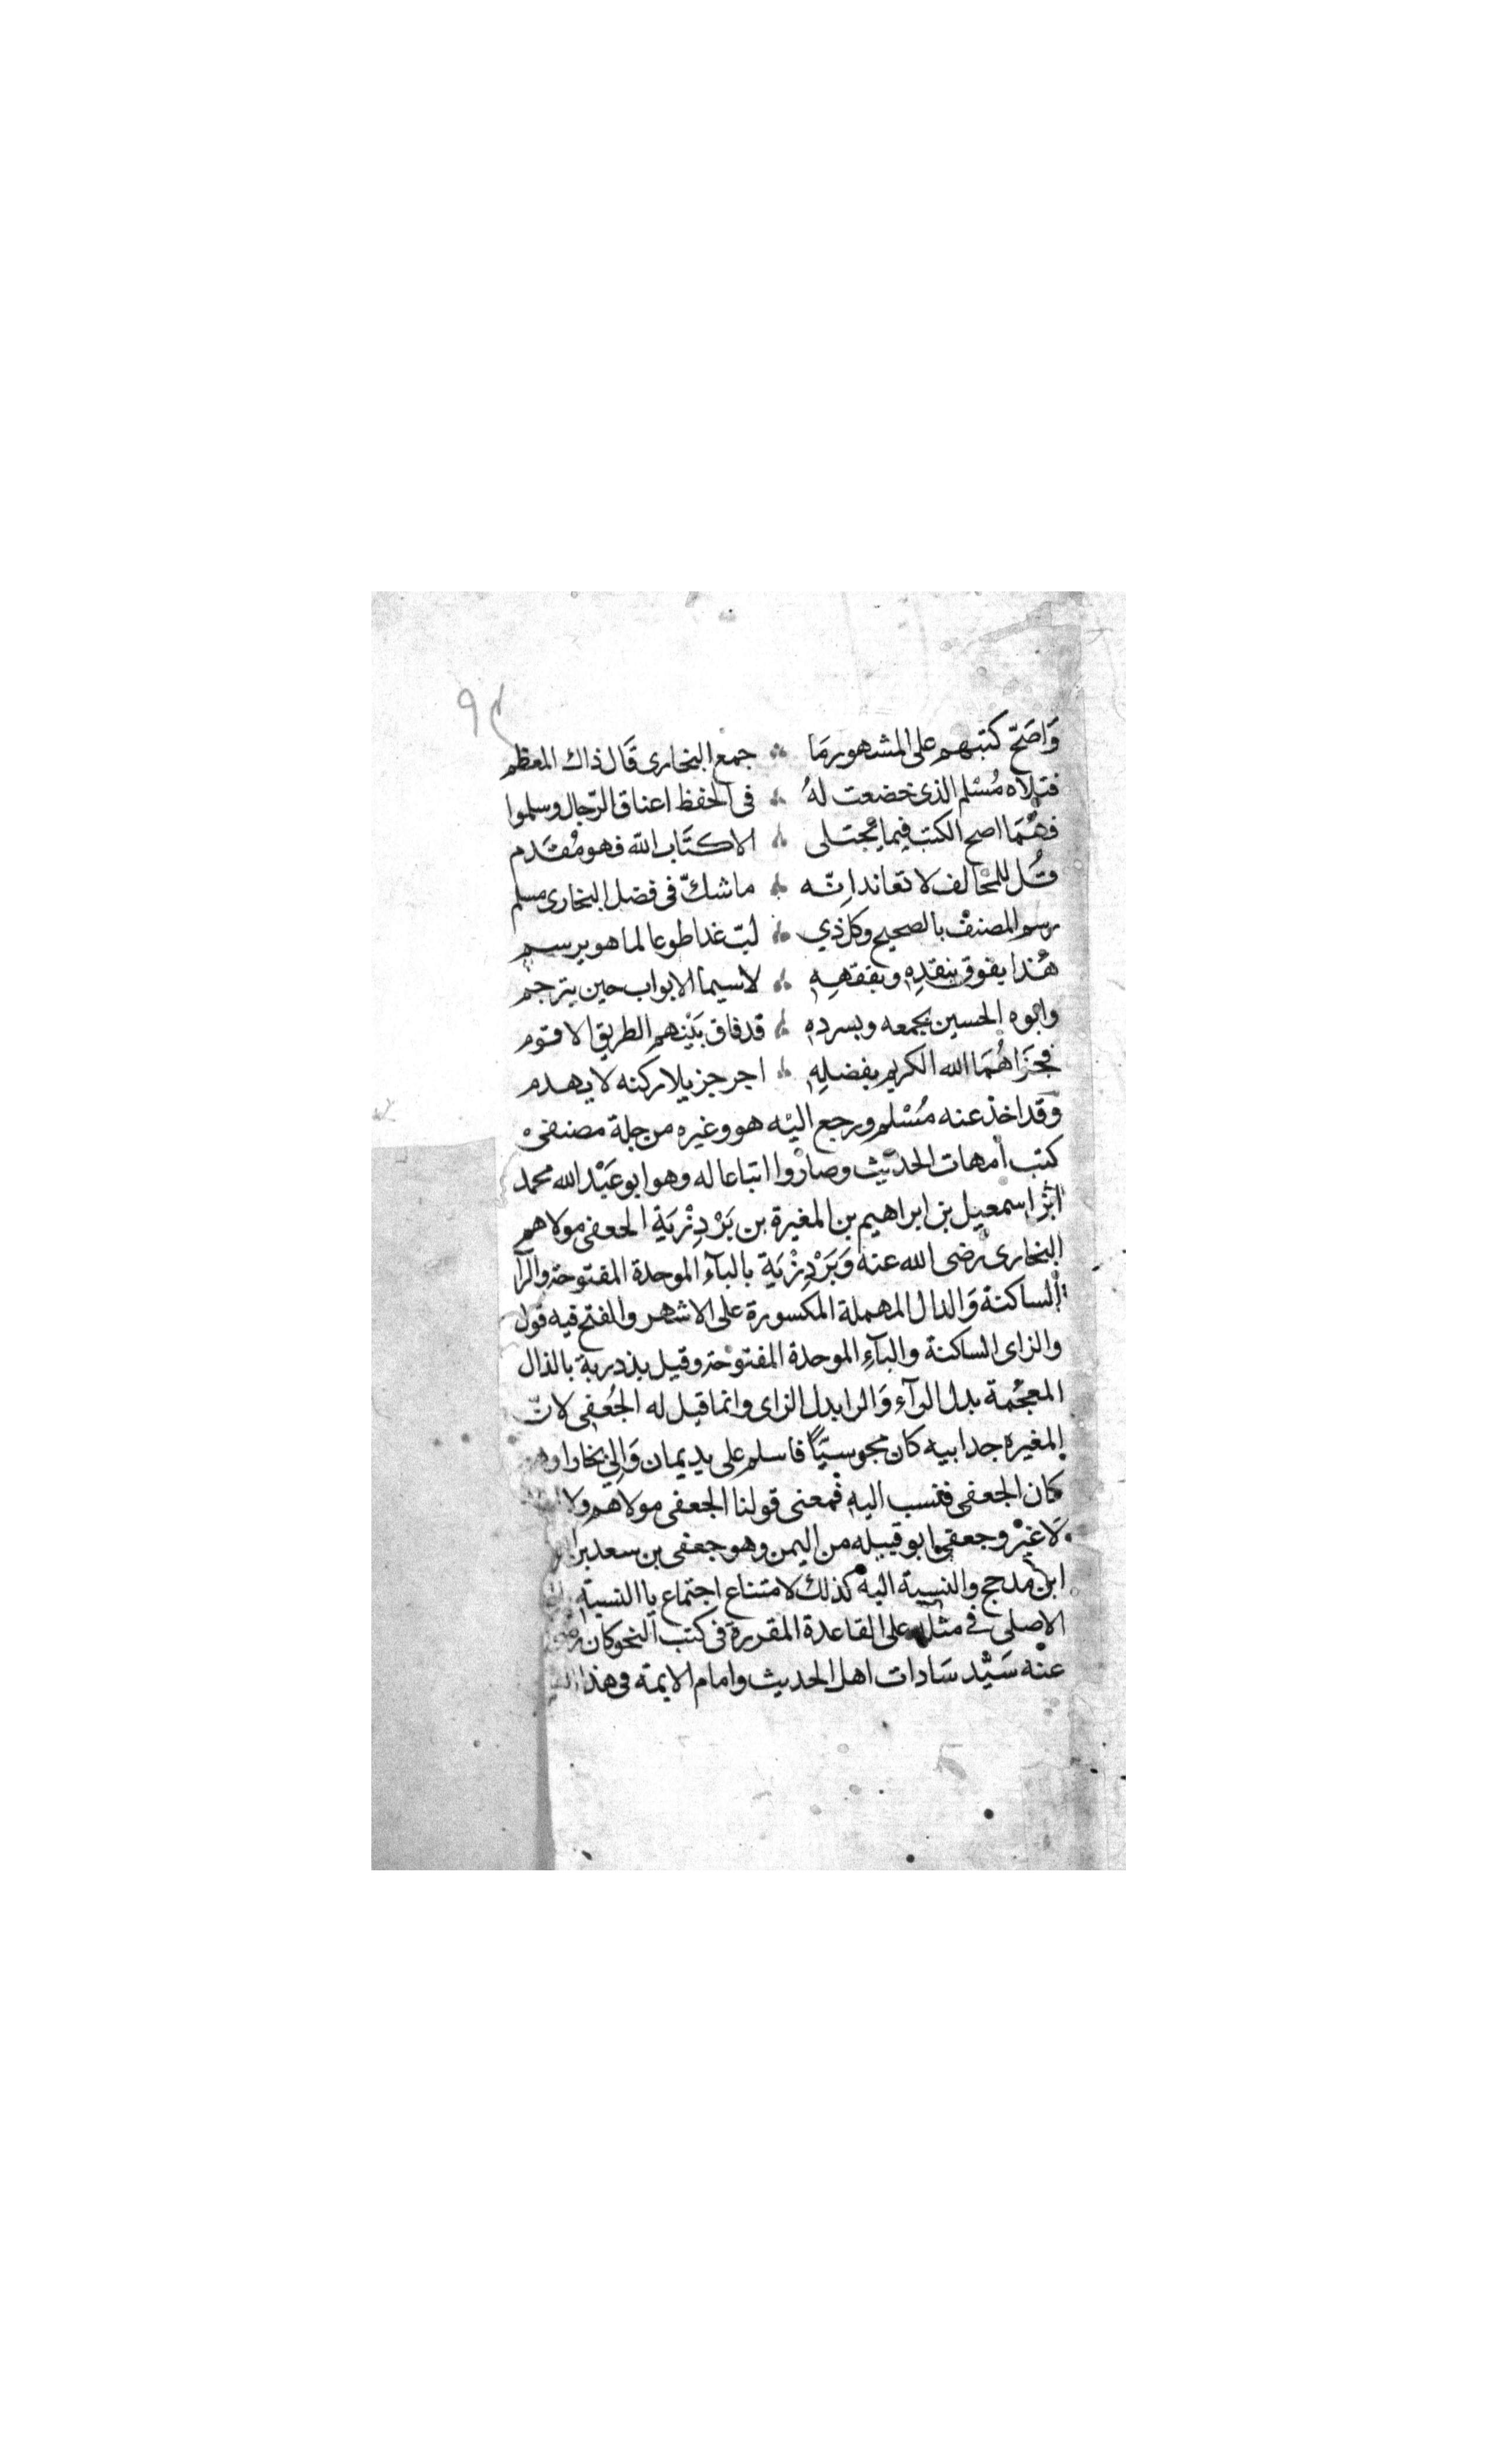 وَاصَحّ كتبهم على المشهور مَا جمع البخارى قَال ذاك المعظم
فتلاه مُسْلم الذى خضعت لهُ فى الحفظ اعناق الرّجال وسلموا
فهُمَا اصح الكتب فيما يجتلى الا كتَاب الله فهو مُقدم
قُل للمخالف لا تعاند انّه ما شكّ فى فضل البخارى مسلم
رسم المصنف بالصحيح وكل ذي لبّ غدا طوعا لما هو يرسم
هٰذا يفوق بنقدِهِ وبفقهِهِ لا سيما الابواب حين يترجم
وابوه الحسين بجمعه وبسردهِ قد فاق بَيْنهم الطريق الاقوم
فجزَاهُمَا الله الكريم بفضلِهِ اجر جزيلا ركنه لا يهدم
وقد اخذ عنه مُسْلم ورجع اليْه هو وغيره من جلة مصنفى
كتب امهات الحديث وصاروا اتباعا له وهو ابو عَبْد الله محمد
ابن اسمعيل بن ابراهيم بن المغيرة بن بَرْدِزْبَة الجعفى مولاهم
البخارى رضى الله عنه وَبَرْدِزْبَة بالبآء الموحدة المفتوحة والرآ
الساكنة وَالدال المهملة المكسورة على الاشهر والفتح فيه قول
والزاى الساكنة والبآءِ الموحدة المفتوحة وقيل بذدربة بالذال
المعجُمة بدل الرآء وَالرا بدل الزاى وانما قيل له الجُعفى لانّ
المغيرة جد ابيه كان مجوسيّاً فاسلم على يد يمان وَالِي بخارا وهو
كان الجعفى فنسب اليهِ فمعنى قولنا الجعفى مولاهم ولا
لَا غيْر وجعفى ابو قبيله من اليمن وهو جعفى بن سعد بن
ابن مدحج والنسبة اليه كذلك لامتناع اجتماع يا النسبة
الاصلى فى مثله على القاعدة المقررة فى كتب النحو كان رضى
عنْه سَيّد سَادات اهل الحديث وامام الايمة فى هذا